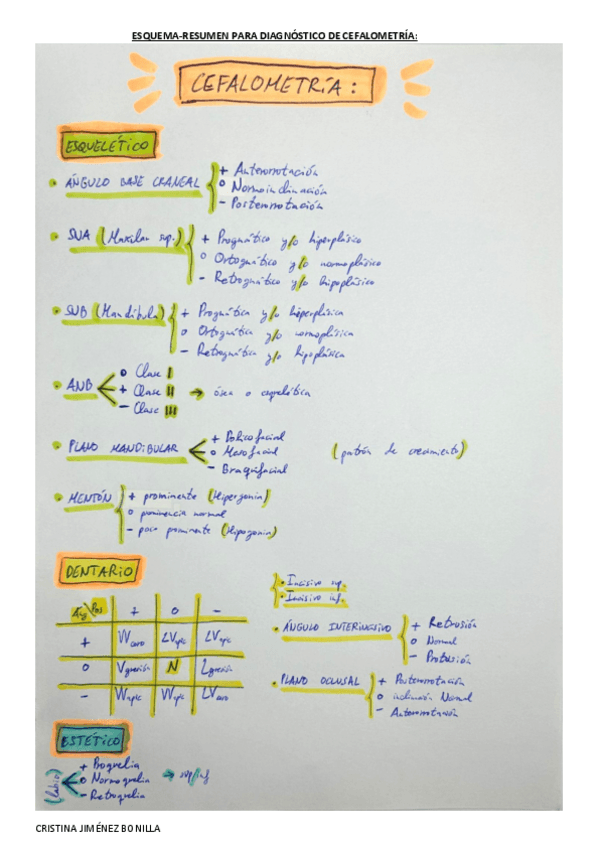 ESQUEMA-RESUMEN PARA DIAGNÓSTICO DE CEFALOMETRÍA:
CEFALOMETRÍA:
ESQUELÉTICO
• ÁNGULO BASE CRANEAL
+ Anterorrotación
o Normoinclinación
- Posterorrotación
• SNA (Maxilar sup.)
+ Prognático y/o hiperplásico
o Ortognático y/o normoplásico
- Retrognático y/o hipoplásico
• SNB (Mandíbula)
+ Prognática y/o hiperplásica
o Ortognática y/o normoplásica
- Retrognática y/o hipoplásica
• ANB
o Clase I
+ Clase II → ósea o esquelética
- Clase III
• PLANO MANDIBULAR
+ Dolicofacial
o Mesofacial
- Braquifacial
(patrón de crecimiento)
• MENTÓN
+ prominente (Hipergenia)
o prominencia normal
- poco prominente (Hipogenia)
DENTARIO
Ang\Pos + o -
+ V coro LV apic LV apic
o V gresión N L gresión
- V apic V apic LV coro
• Incisivo sup.
• Incisivo inf.
• ÁNGULO INTERINCISIVO
+ Retrusión
o Normal
- Protrusión
• PLANO OCLUSAL
+ Posterorrotación
o inclinación Normal
- Anterorrotación
ESTÉTICO
(labio)
+ Proquelia
o Normoquelia → sup/inf
- Retroquelia
CRISTINA JIMÉNEZ BONILLA